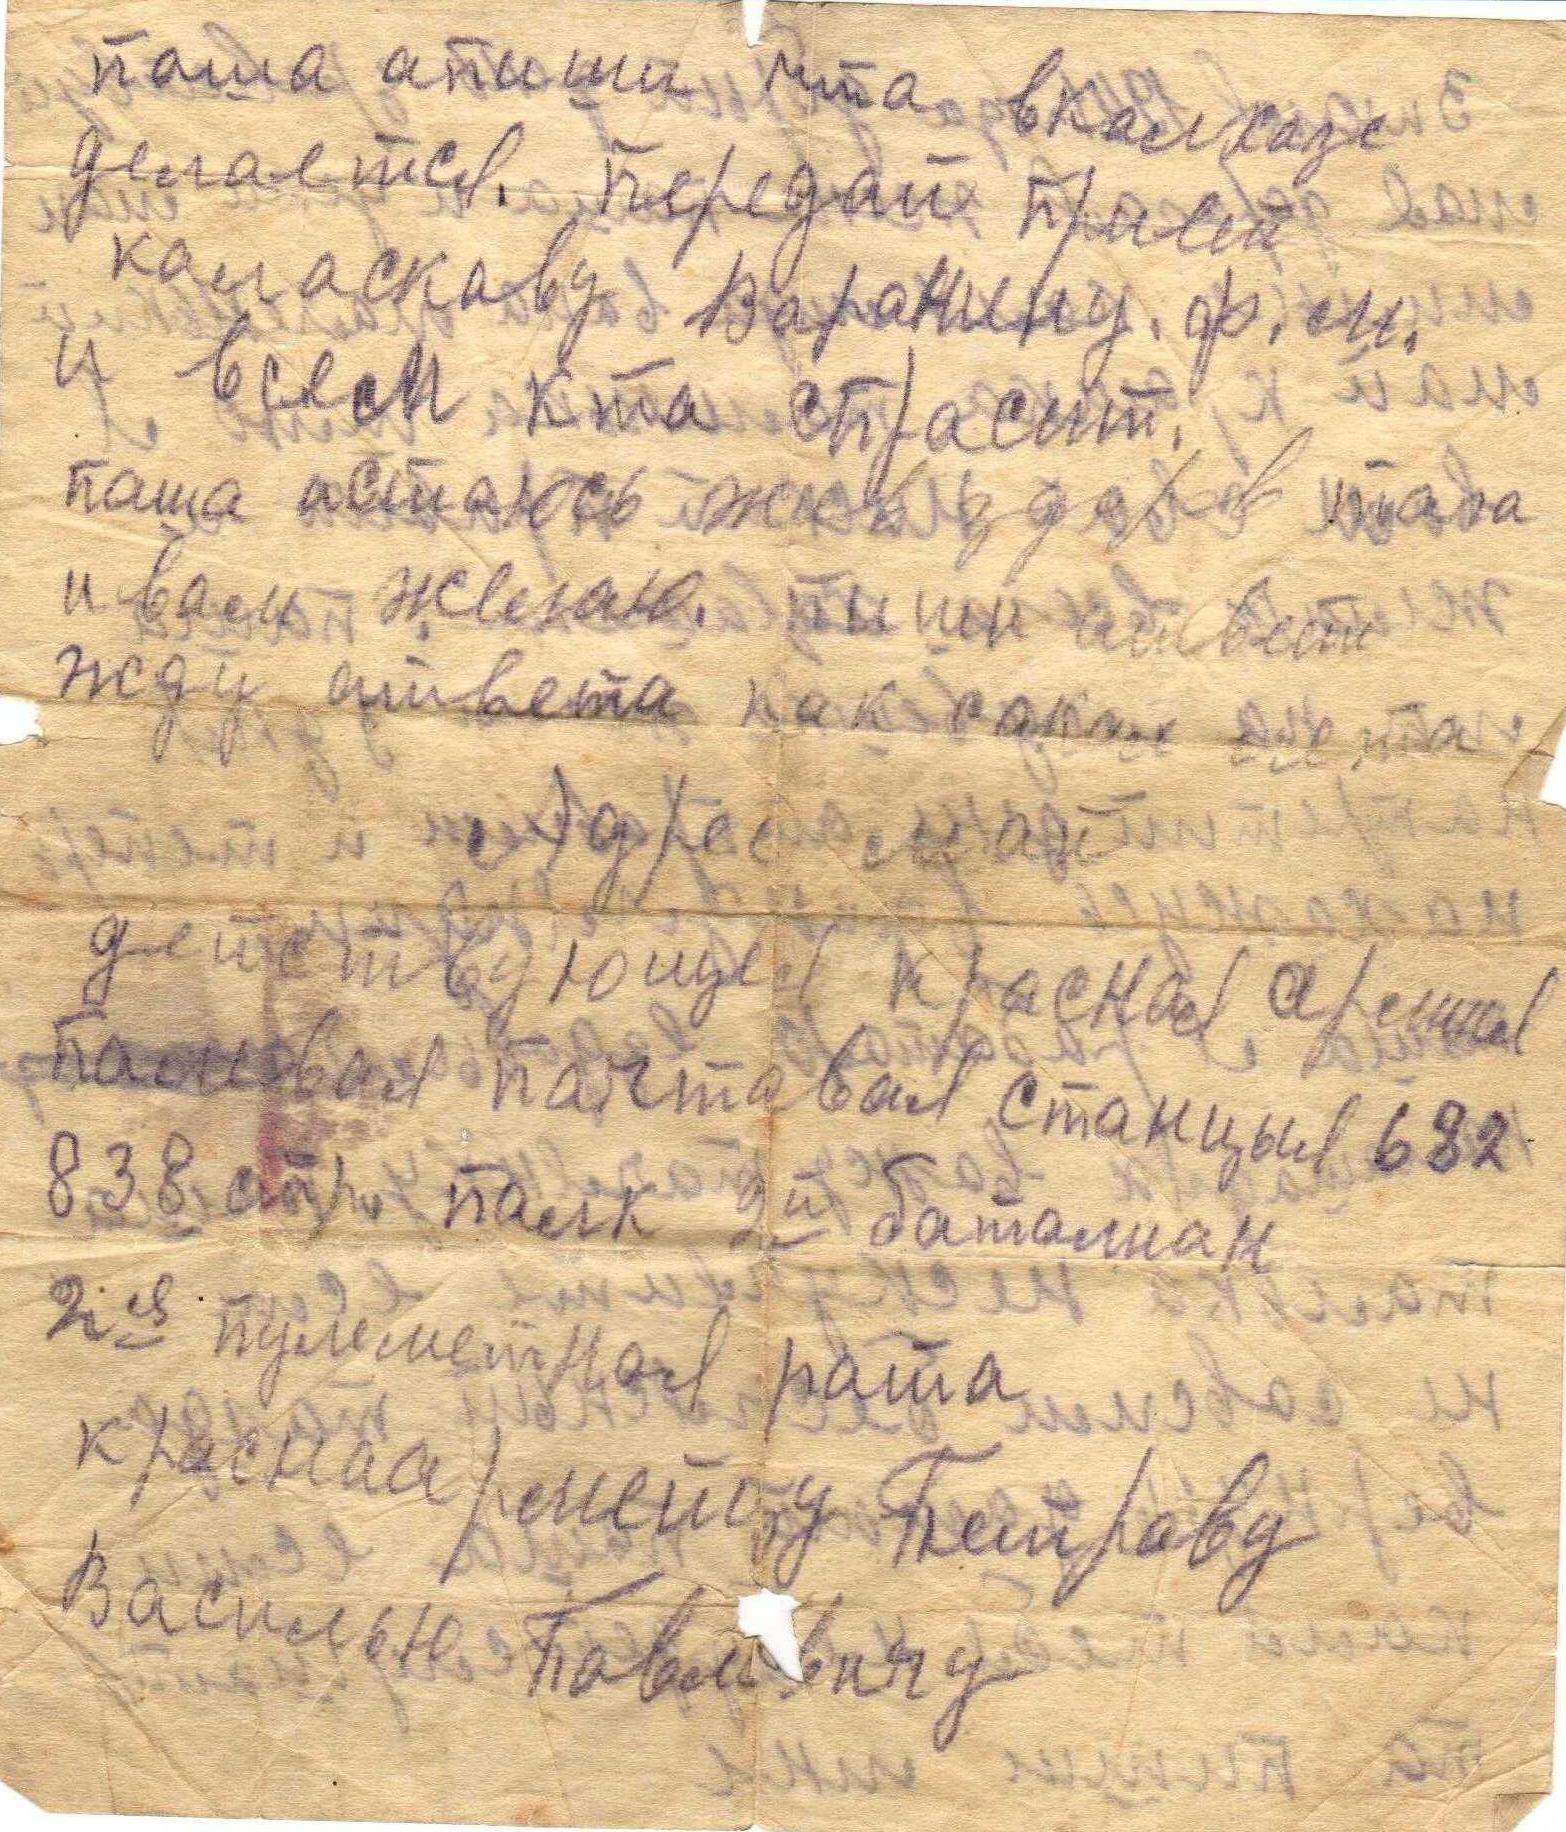 паша апиши чта вкалхазе
делаетея. передай прывет
каласкаву Варанину. ф. м.
и всем кта спрасит.
паша астаюсь жив здаров таго
и вам желаю. пиши атвет
жду атвета как
Адрес мой
действующея красная армия
паливая пачтавая станцыя 682
838 стр. палк 2й баталиан
2ия пулеметная рата
краснаармейцу Петраву
Василью Павлвичу